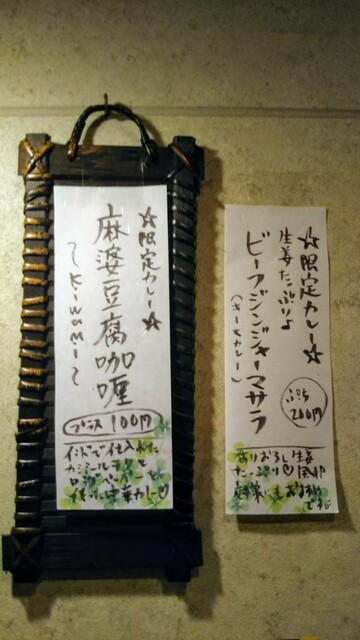 ☆限定カレー☆
生姜たっぷりよ
ビーフジンジャーマサラ
(キーマカレー)
ぷらす
200円
すりおろし生姜
たっぷり♡
☆限定カレー☆
麻婆豆腐咖喱
〜Kiwami〜
プラス 100円
インドで仕入れた
カシミールチリと
ロングペッパーを
使った中華カレー♡